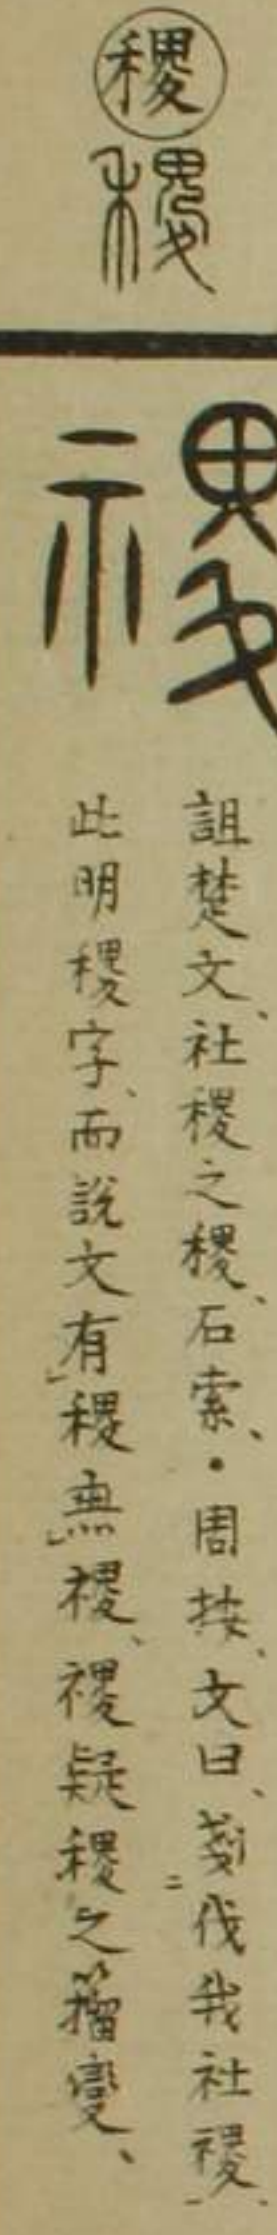 稷
稷
禝
詛楚文、社稷之稷、石索、・周按、文曰、刬伐我社禝、
此明稷字、而說文有稷無禝、禝疑稷之籀變、